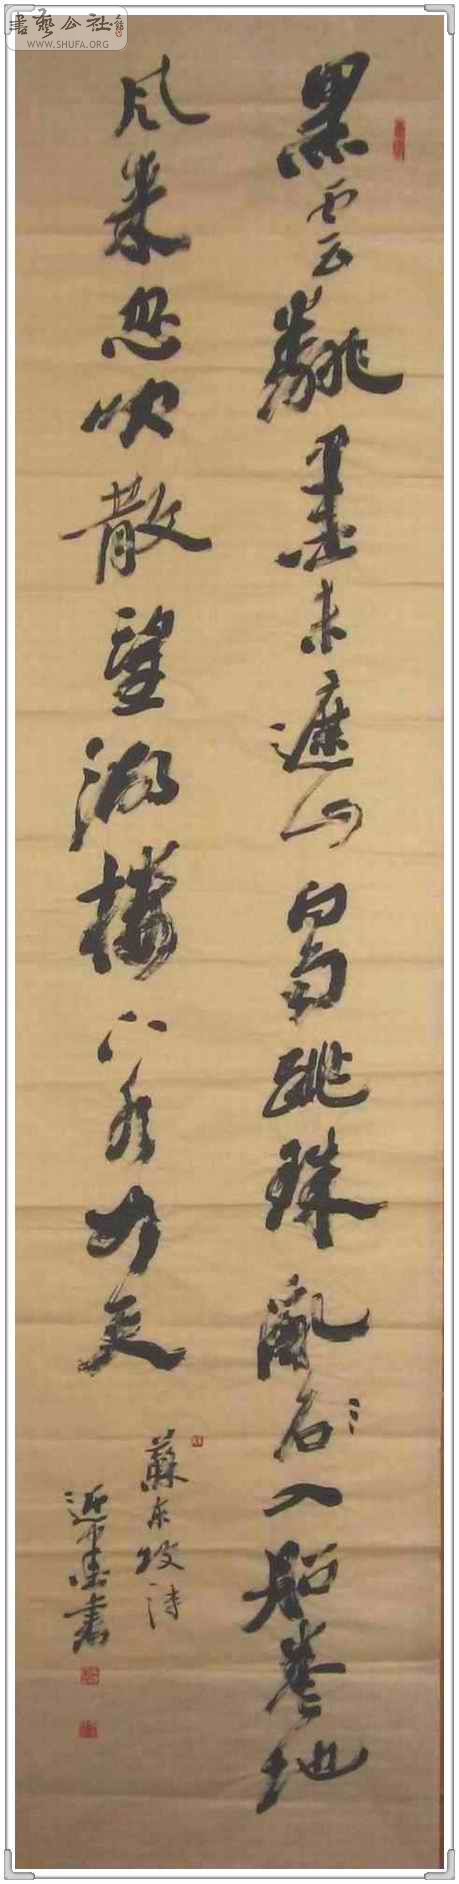 書藝公社
WWW.SHUFA.ORG
黑雲翻墨未遮山白雨跳珠亂石入船卷地
風來忽吹散望湖樓下水如天
蘇東坡詩
近墨書